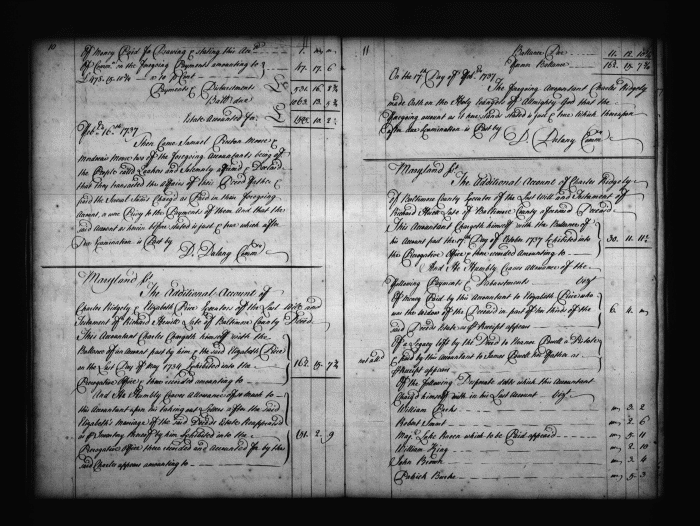 10
Of Money Paid for Drawing & Stating this Acct
Of Comn. on the foregoing Payments amounting to 47. 17. 6
£478. 15. 11¾ at 10 ⅌ Cent
Payments & Disbursements £ 531. 16. 8¾
Ballce. due 1063. 13. 5¾
Estate Amounted to £
Febry 16th 1737
Then Came Samuel
Mordecai Moore two of the foregoing Accountants being of
the People called Quakers and Solemnly affirmed & Declared
that they transacted the affairs of their Decd Father &
paid the Several Sums Charged as Paid in their foregoing
Account, & were Privy to the Payments of them And that the
said Account as herein before stated is just & true which after
Due Examination is Past by
D. Dulany Commry
Maryland ss.
The Additional Account of
Charles Ridgely & Elizabeth his Executors of the Last Will and
Testament of Richard Late of Baltimore County Decd
This Accountant Charles Chargeth himself with the
Ballance of an Account past by him & the said Elizabeth
on the Last Day of May 1734 Exhibited into the 162. 15. 7¾
Prerogative Office & there recorded amounting to
And He Humbly Craves Allowance
this Accountant upon his taking out Letters after the said
Elizabeth's Marriage of the said Decds Estate Reappraised
as ⅌ Inventory thereof by him Exhibited into the 131. 2. 9
Prerogative Office there recorded and Accounted for by the
said Charles appears amounting to
11
Ballance Due 11. 12. 10¾
Former Ballance 162. 15. 7¾
On the 17th Day of 1737
The foregoing Accountant Charles Ridgely
made Oath on the Holy Evangels of Almighty God that the
foregoing account as it now stands stated is just & true Which thereupon
after due Examination is Past by
D. Dulany Commry
Maryland ss.
The Additional Account of Charles Ridgely
Of Baltimore County Executor of the Last Will and Testament of
Richard Late of Baltimore County aforesaid Deceased
This Accountant Chargeth himself with the Ballance of
his Account past the 17th Day of October 1737 Exhibited into 30. 11. 11¾
the Prerogative Office & there recorded amounting to
And He Humbly Craves Allowance of the
following Payments & Disbursements Vizt
Of Money Paid by this Accountant to Elizabeth who
was the widow of the Deceased in part of her thirds of the 6. 4.
said Decds Estate as ⅌ Receipt appears
Of a Legacy left by the Decd to Powell
& paid by this Accountant to James Powell her Father as
⅌ Receipt appears
Of the following Desperate debts which this Accountant
Charged himself with in his Last Account Vizt
William 3. 2
Robert 2. 6
Majr. Luke which to be Paid appeared 5. 11
William King 2. 10
John Brown 3. 4
Patrick Burke 5. 3